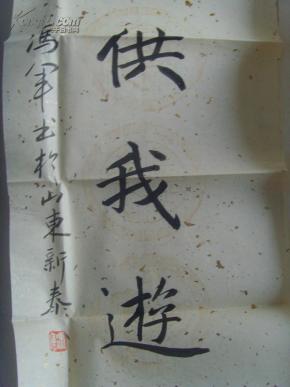 供我遊
馮軍书於山東新泰